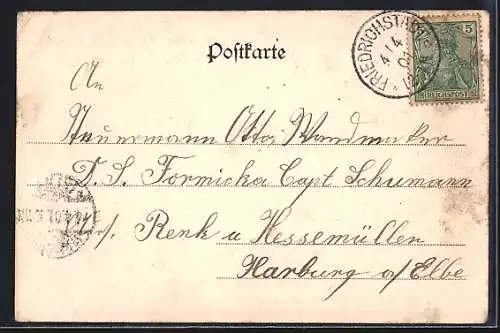 Postkarte
FRIEDRICHSTADT
4/4
01
5
REICHSPOST
An
Steuermann Otto Wandmaker
D. S. Formicka Capt Schumann
Adr. Renk u Hessemüller
Harburg a/Elbe